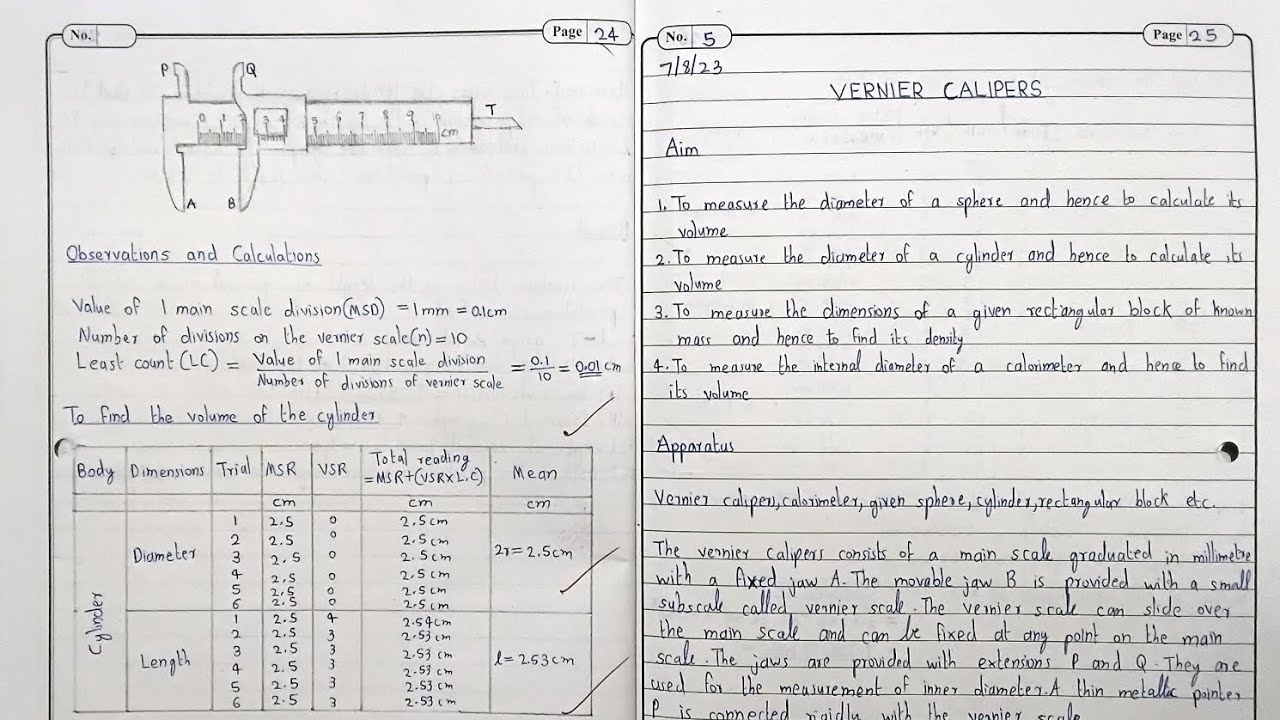 No.
Page 24
P Q
T
0 1 2 3 4 5 6 7 8 9
cm
A B
Observations and Calculations
Value of 1 main scale division(MSD) = 1mm = 0.1cm
Number of divisions on the vernier scale(n) = 10
Least count (LC) = Value of 1 main scale division / Number of divisions of vernier scale = 0.1/10 = 0.01 cm
To find the volume of the cylinder
Body Dimensions Trial MSR VSR Total reading =MSR+(VSR×L.C) Mean
cm cm cm
Cylinder
Diameter
1 2.5 0 2.5cm
2 2.5 0 2.5cm
3 2.5 0 2.5cm
4 2.5 0 2.5cm
5 2.5 0 2.5cm
6 2.5 0 2.5cm
2r = 2.5cm
Length
1 2.5 4 2.54cm
2 2.5 3 2.53cm
3 2.5 3 2.53cm
4 2.5 3 2.53cm
5 2.5 3 2.53cm
6 2.5 3 2.53cm
l = 2.53cm
No. 5
Page 25
7/8/23
VERNIER CALIPERS
Aim
1. To measure the diameter of a sphere and hence to calculate its
volume
2. To measure the diameter of a cylinder and hence to calculate its
volume
3. To measure the dimensions of a given rectangular block of known
mass and hence to find its density
4. To measure the internal diameter of a calorimeter and hence to find
its volume
Apparatus
Vernier calipers, calorimeter, given sphere, cylinder, rectangular block etc.
The vernier calipers consists of a main scale graduated in millimetre
with a fixed jaw A. The movable jaw B is provided with a small
subscale called vernier scale. The vernier scale can slide over
the main scale and can be fixed at any point on the main
scale. The jaws are provided with extensions P and Q. They are
used for the measurement of inner diameter. A thin metallic pointer
P is connected rigidly with the vernier scale